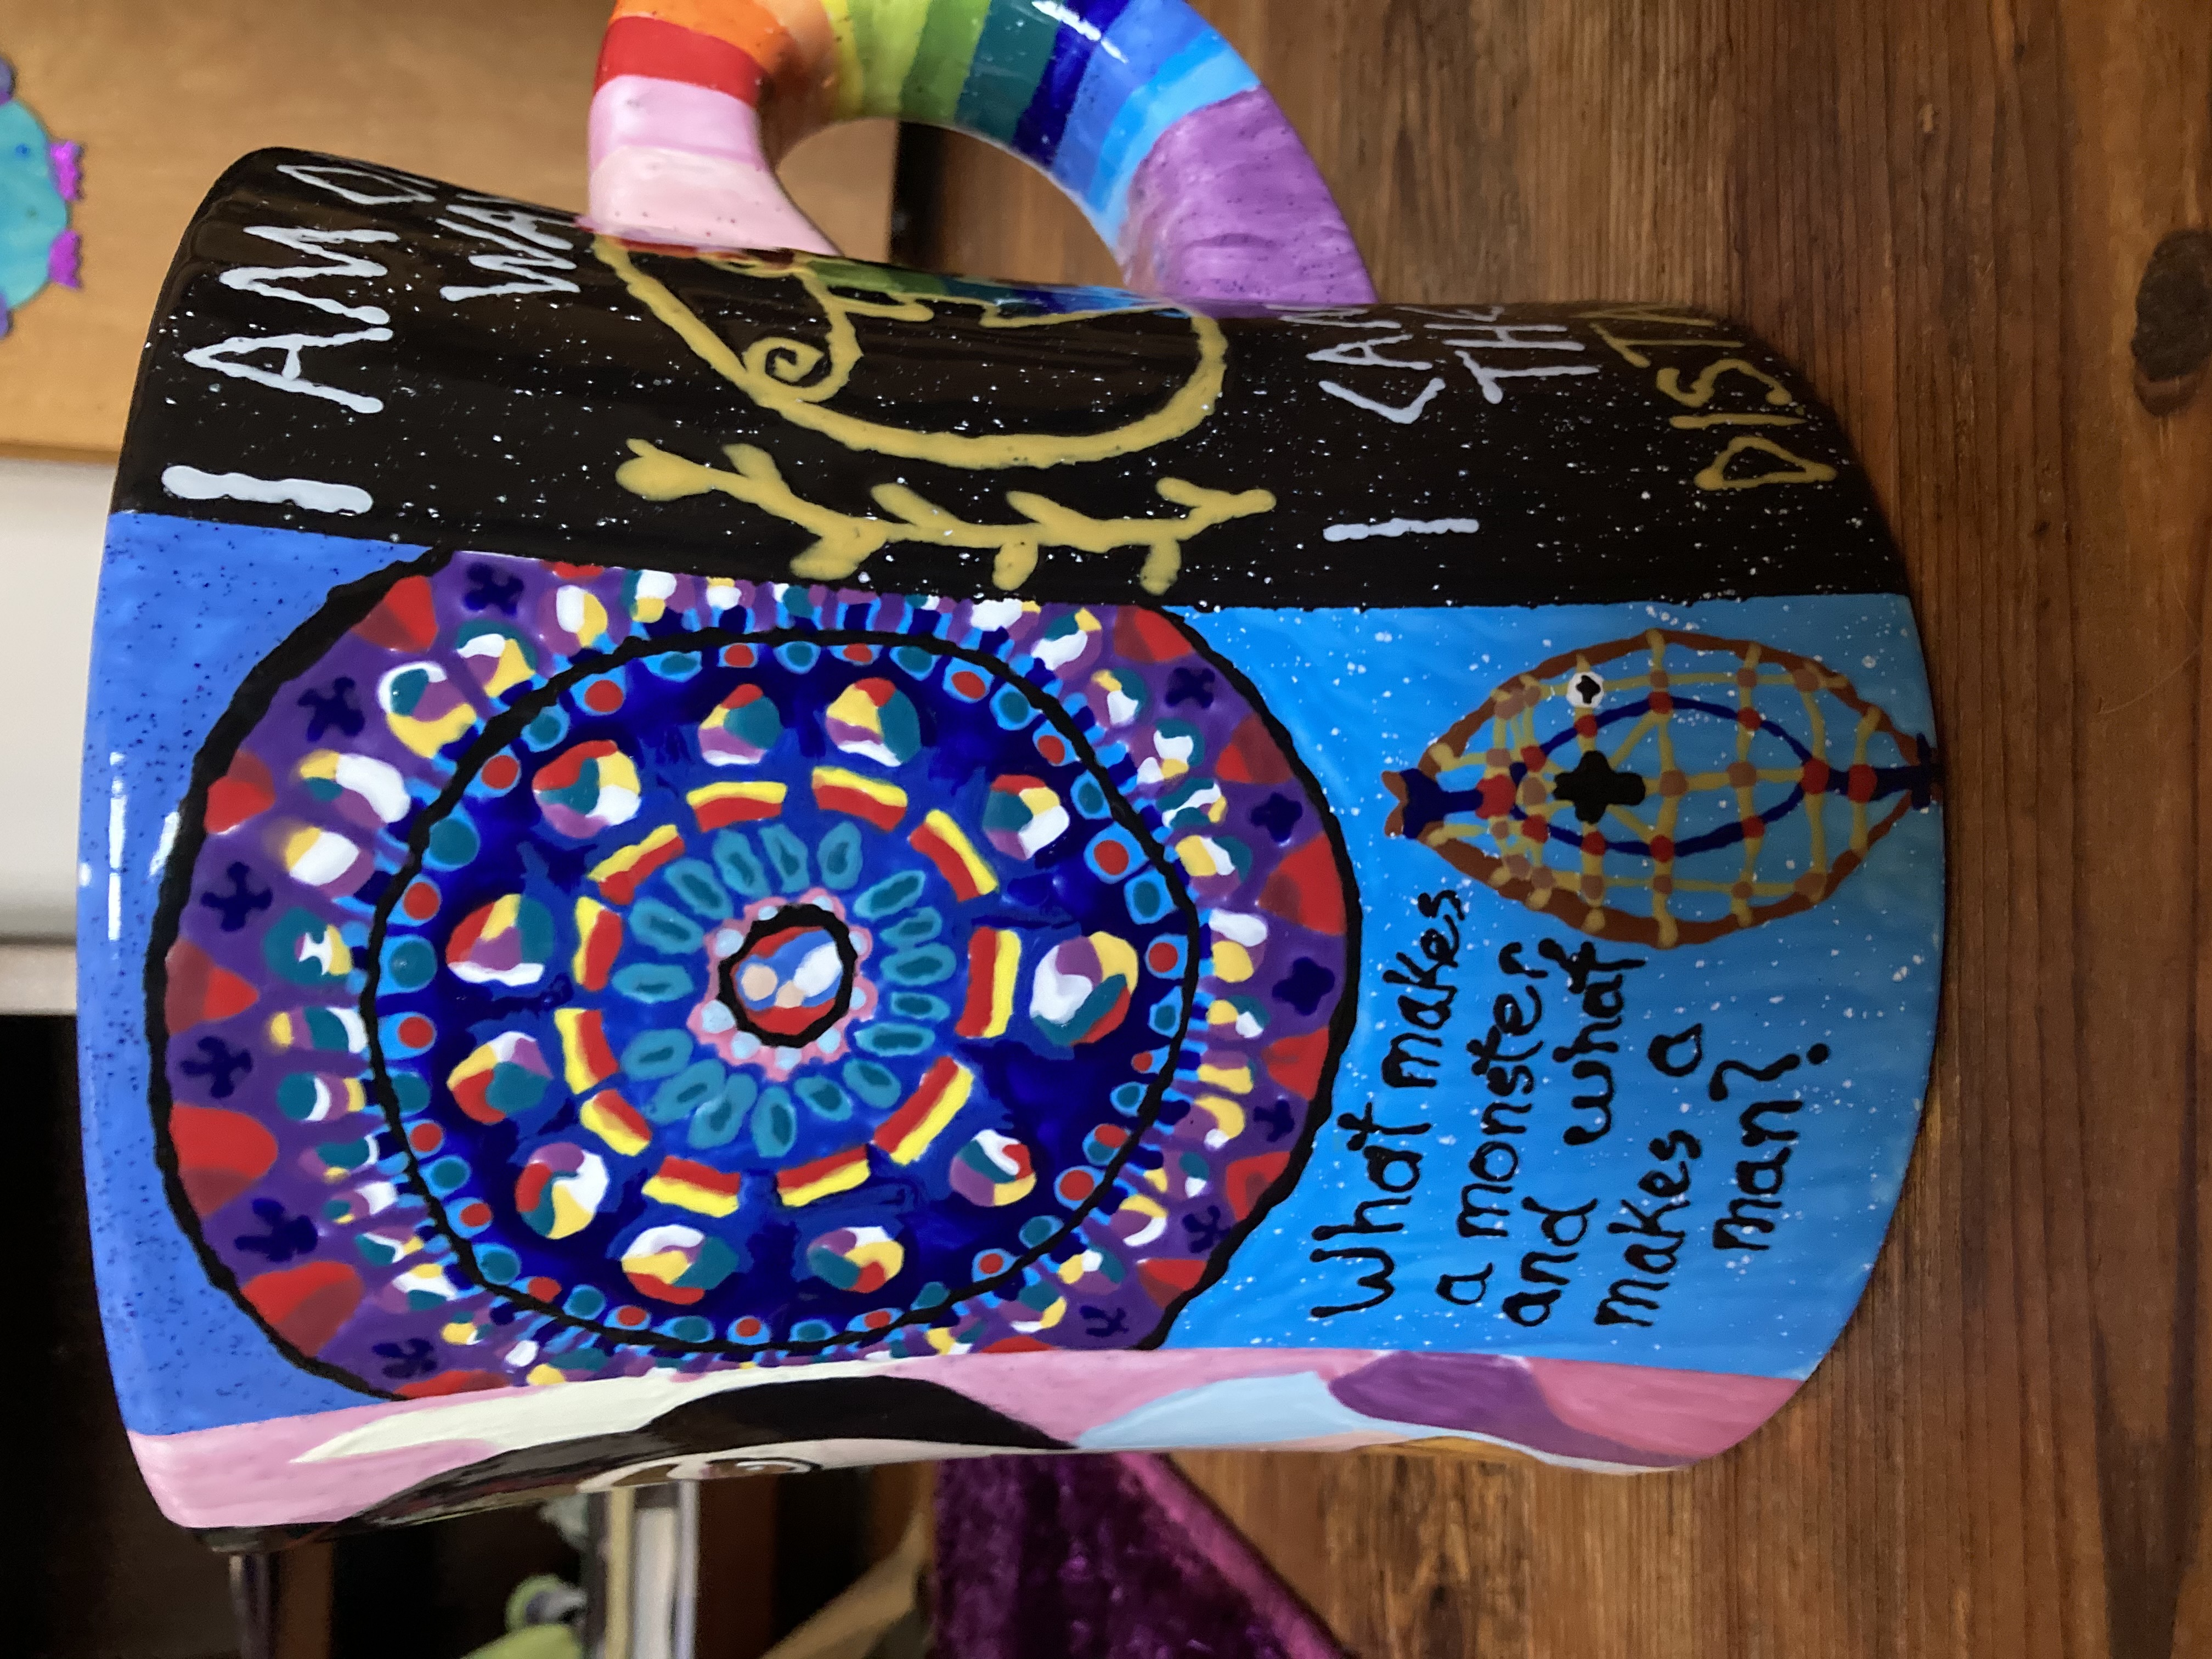 What makes
a monster,
and what
makes a
man?
I AM
I
THE